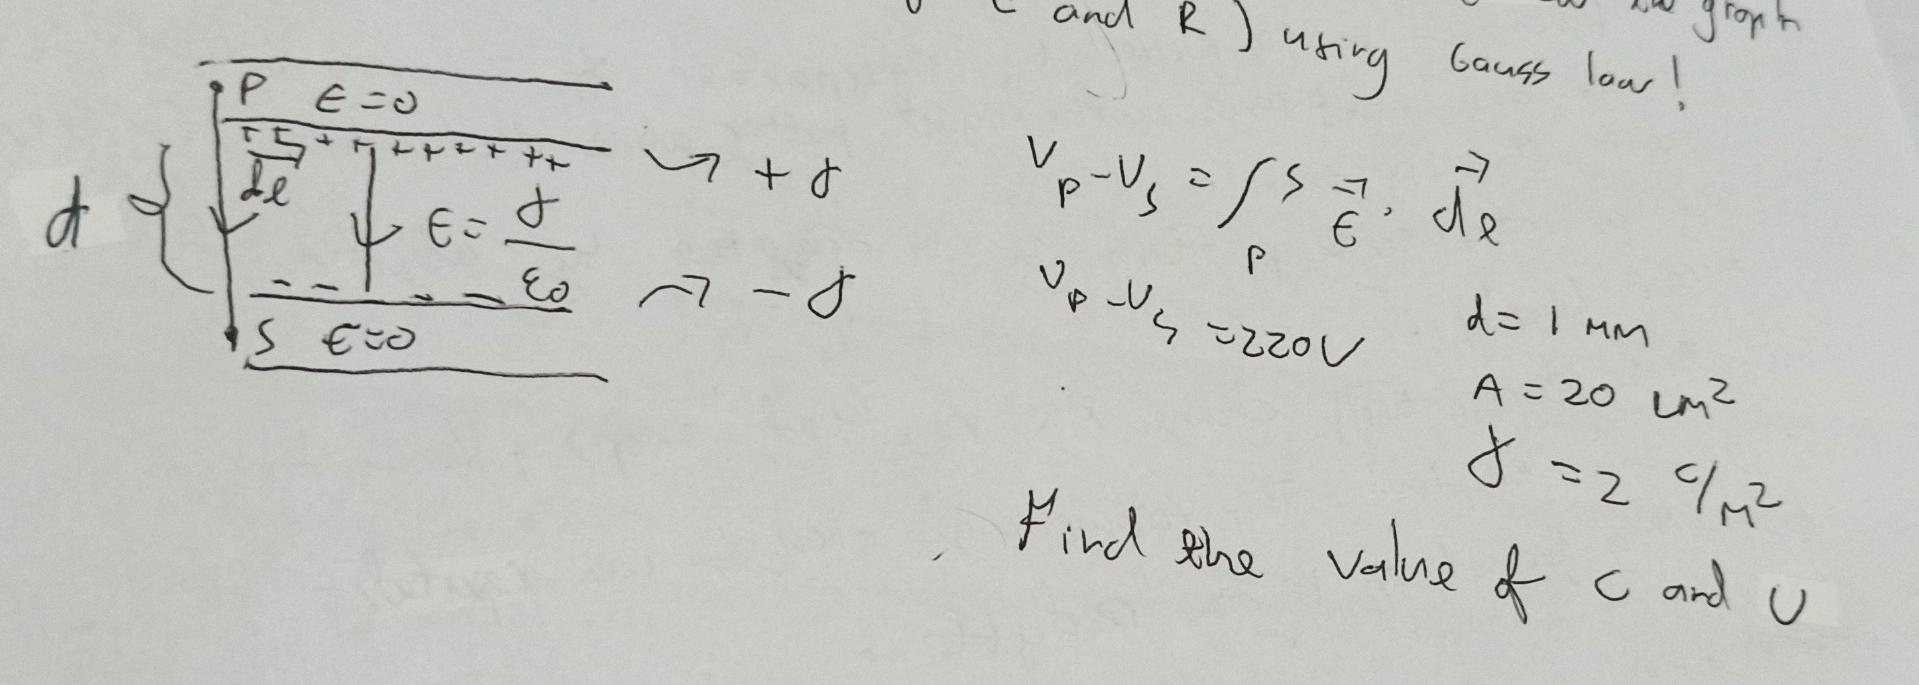 C and R) using Gauss law!
the graph
P E=0
+ + + + + + + + + +
→ +σ
dl
d
E = σ/ε0
- - - -
→ -σ
S E=0
Vp-Vs = ∫ S P E→ . dl→
Vp-Vs =220V
d= 1 mm
A = 20 cm²
σ = 2 C/m²
Find the value of C and U